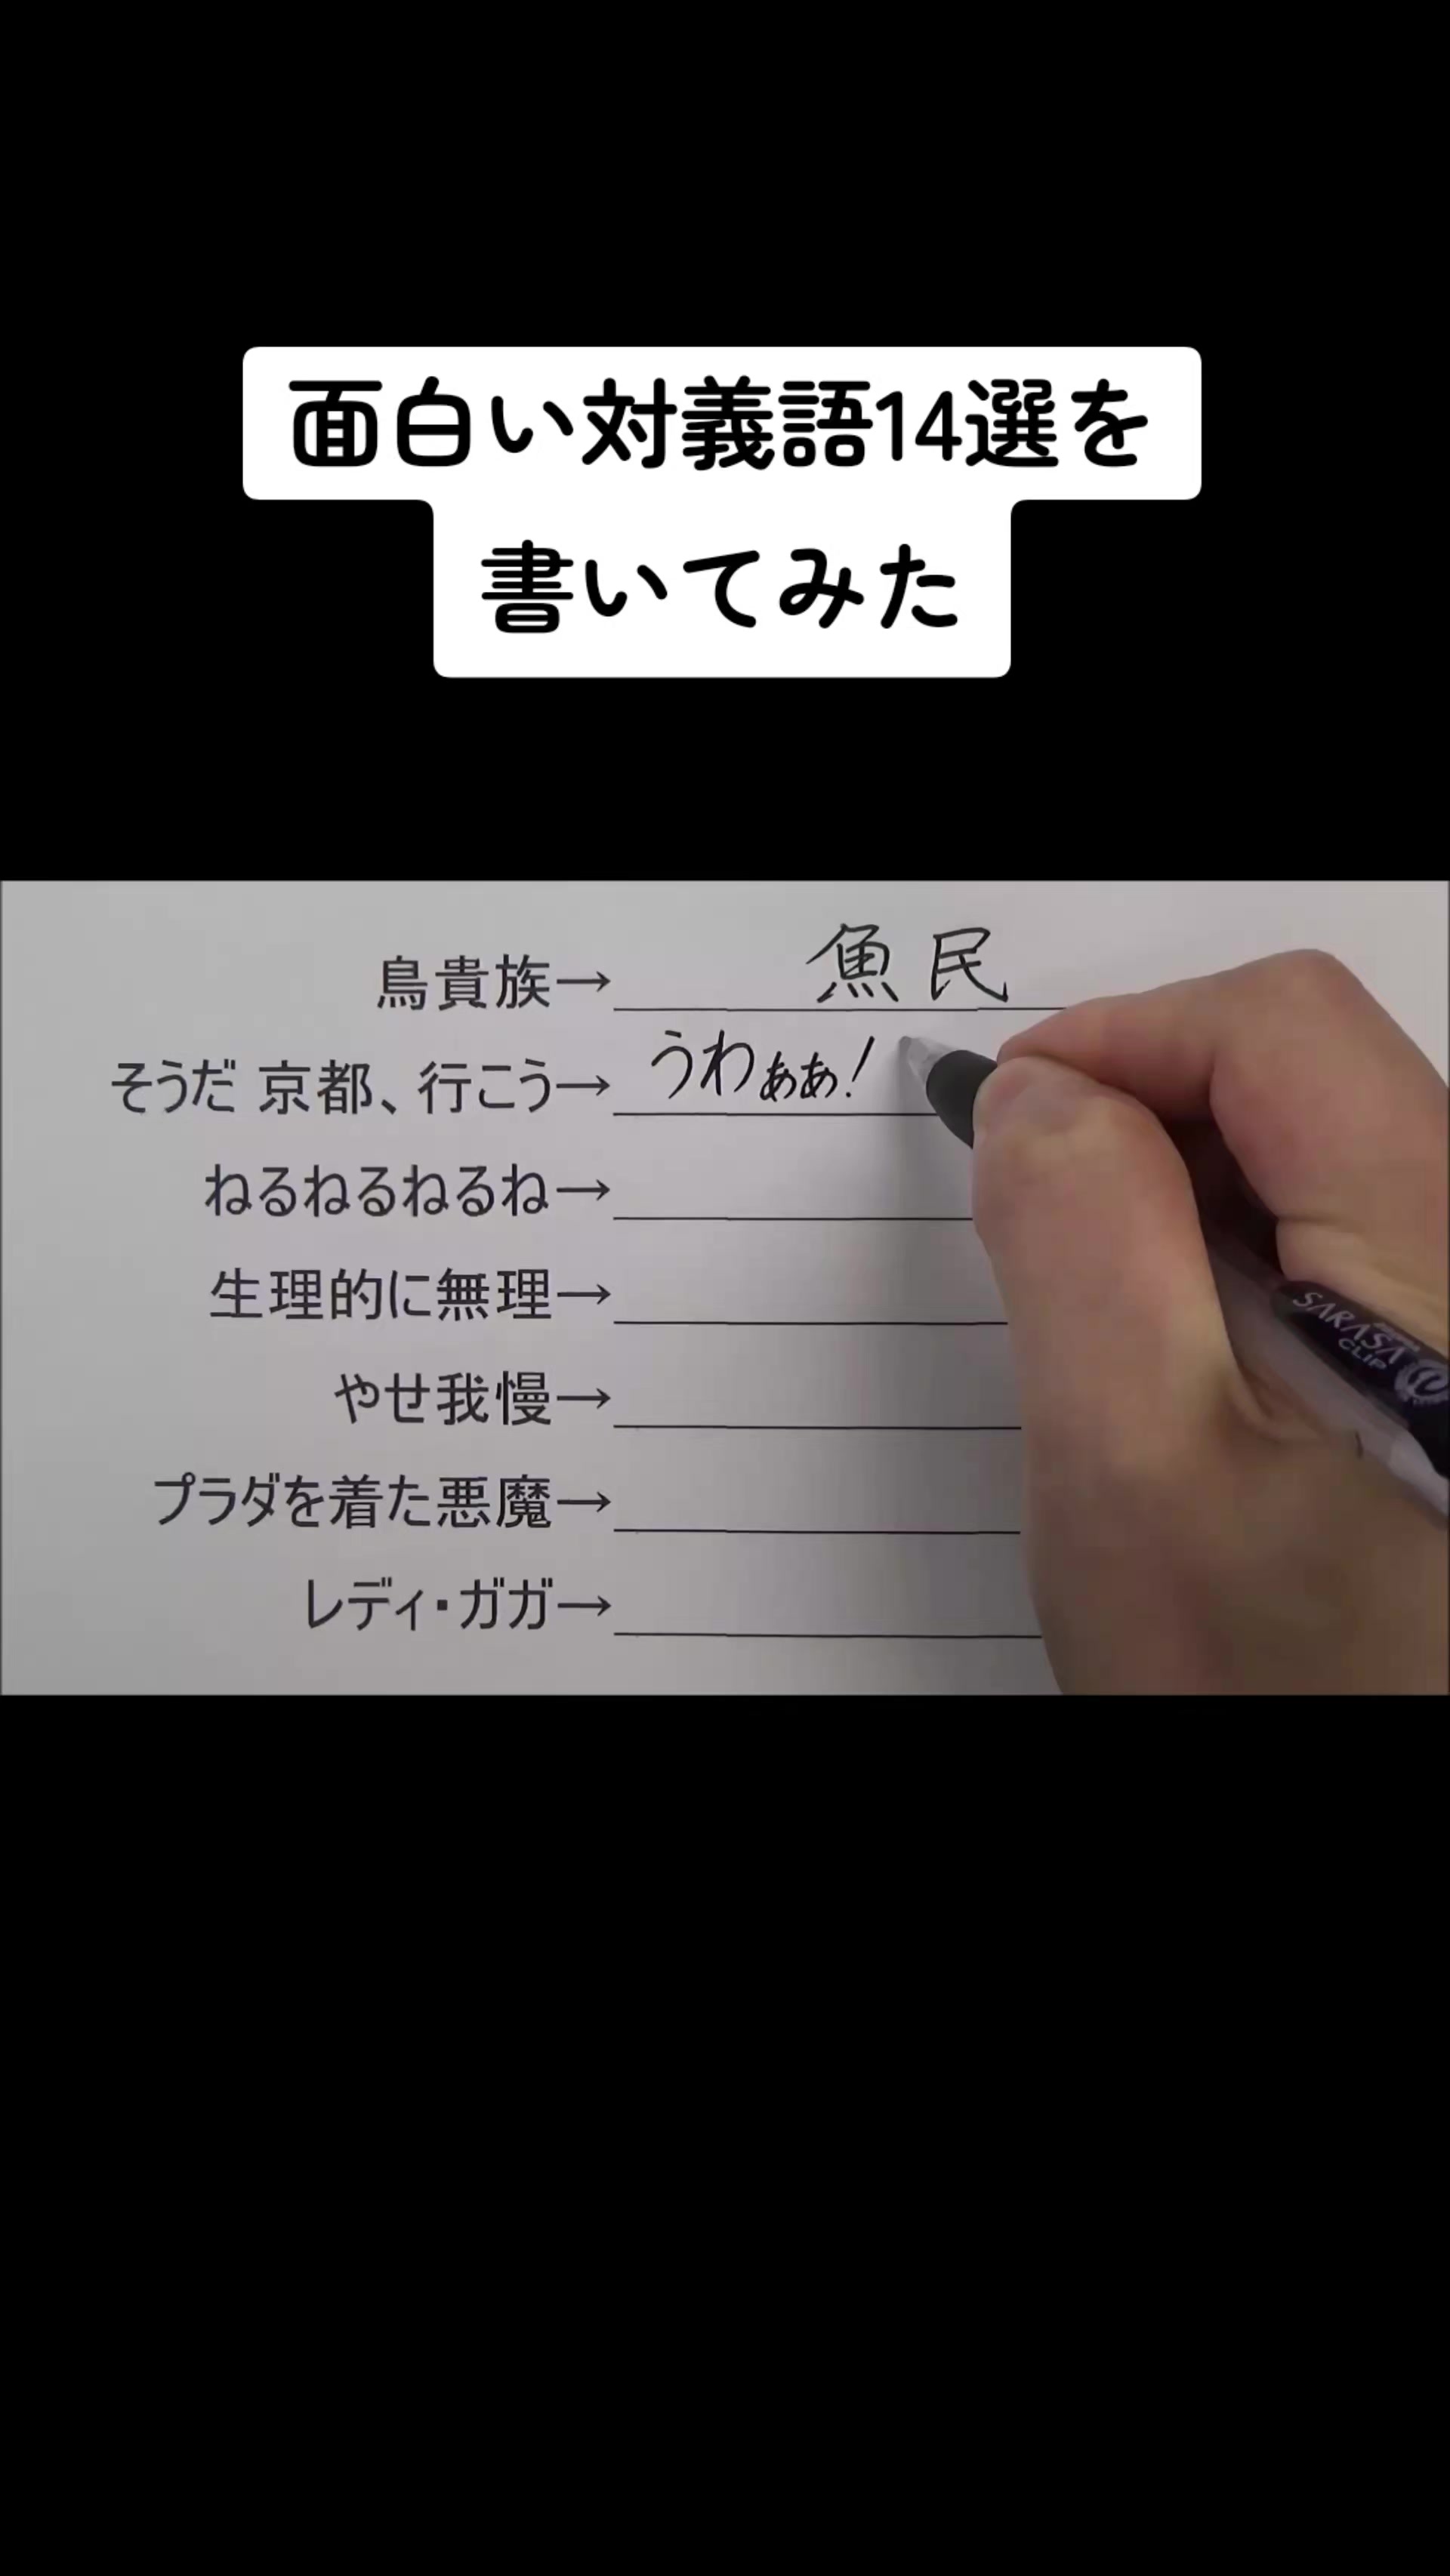 面白い対義語14選を
書いてみた
鳥貴族→ 魚民
そうだ 京都、行こう→ うわぁぁ!
ねるねるねるね→
生理的に無理→
やせ我慢→
プラダを着た悪魔→
レディ・ガガ→
SARASA
CLIP